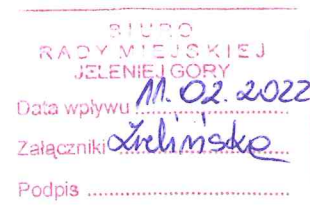 BIURO
RADY MIEJSKIEJ
JELENIEJ GÓRY
Data wpływu 11.02.2022
Załączniki Zielińska
Podpis ....................